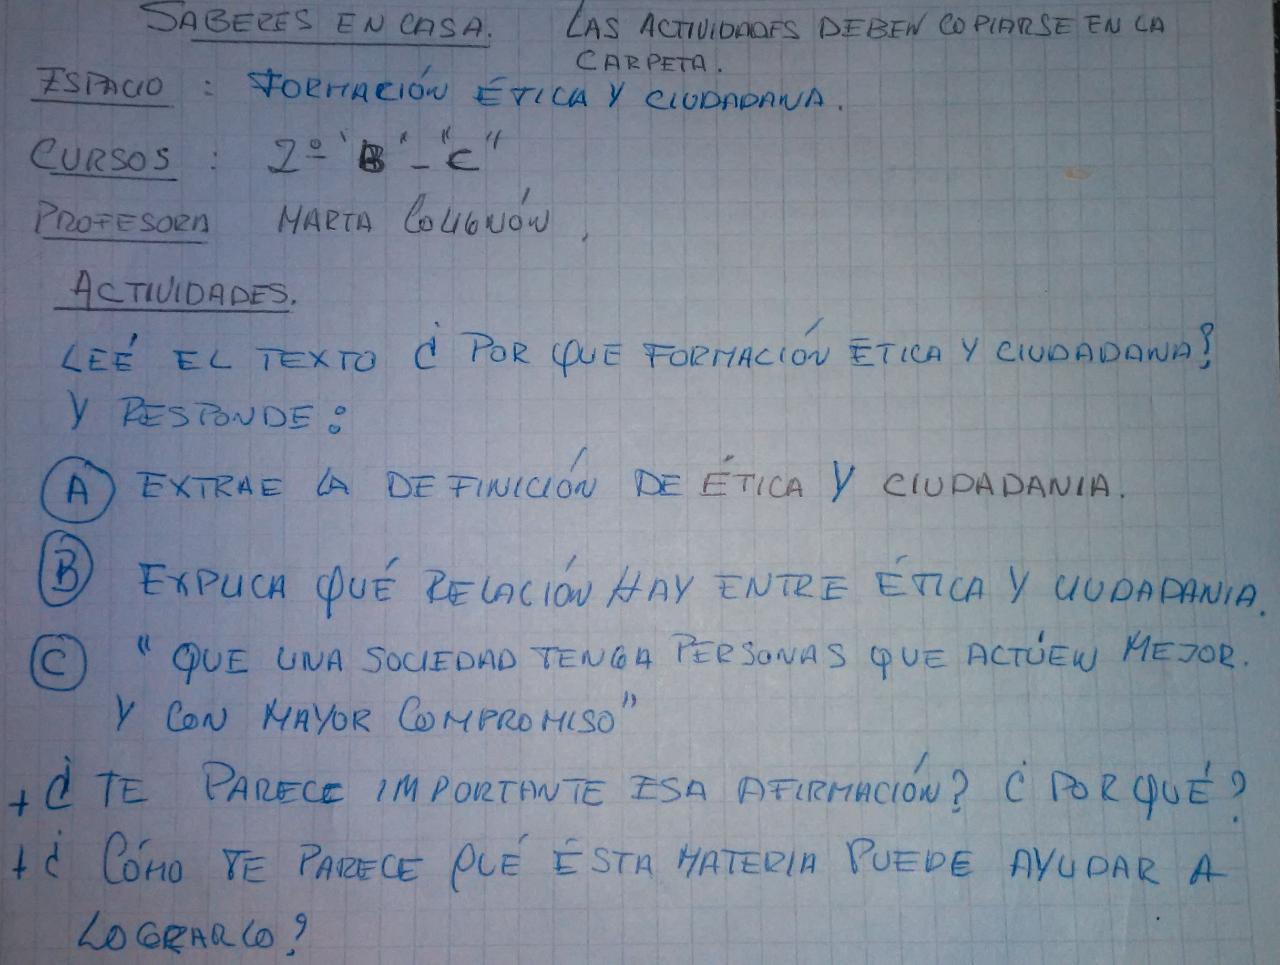 SABERES EN CASA. LAS ACTIVIDADES DEBEN COPIARSE EN LA
CARPETA.
ESPACIO : FORMACIÓN ÉTICA Y CIUDADANA.
CURSOS : 2º "B" - "C"
PROFESORA MARTA COLIGNÓN.
ACTIVIDADES.
LEÉ EL TEXTO ¿POR QUE FORMACIÓN ÉTICA Y CIUDADANA?
Y RESPONDE:
A EXTRAE LA DEFINICIÓN DE ÉTICA Y CIUDADANIA.
B EXPLICA QUÉ RELACIÓN HAY ENTRE ÉTICA Y CIUDADANIA.
C "QUE UNA SOCIEDAD TENGA PERSONAS QUE ACTÚEN MEJOR.
Y CON MAYOR COMPROMISO"
+ ¿TE PARECE IMPORTANTE ESA AFIRMACIÓN? ¿POR QUÉ?
+ ¿CÓMO TE PARECE QUÉ ÉSTA MATERIA PUEDE AYUDAR A
LOGRARLO?